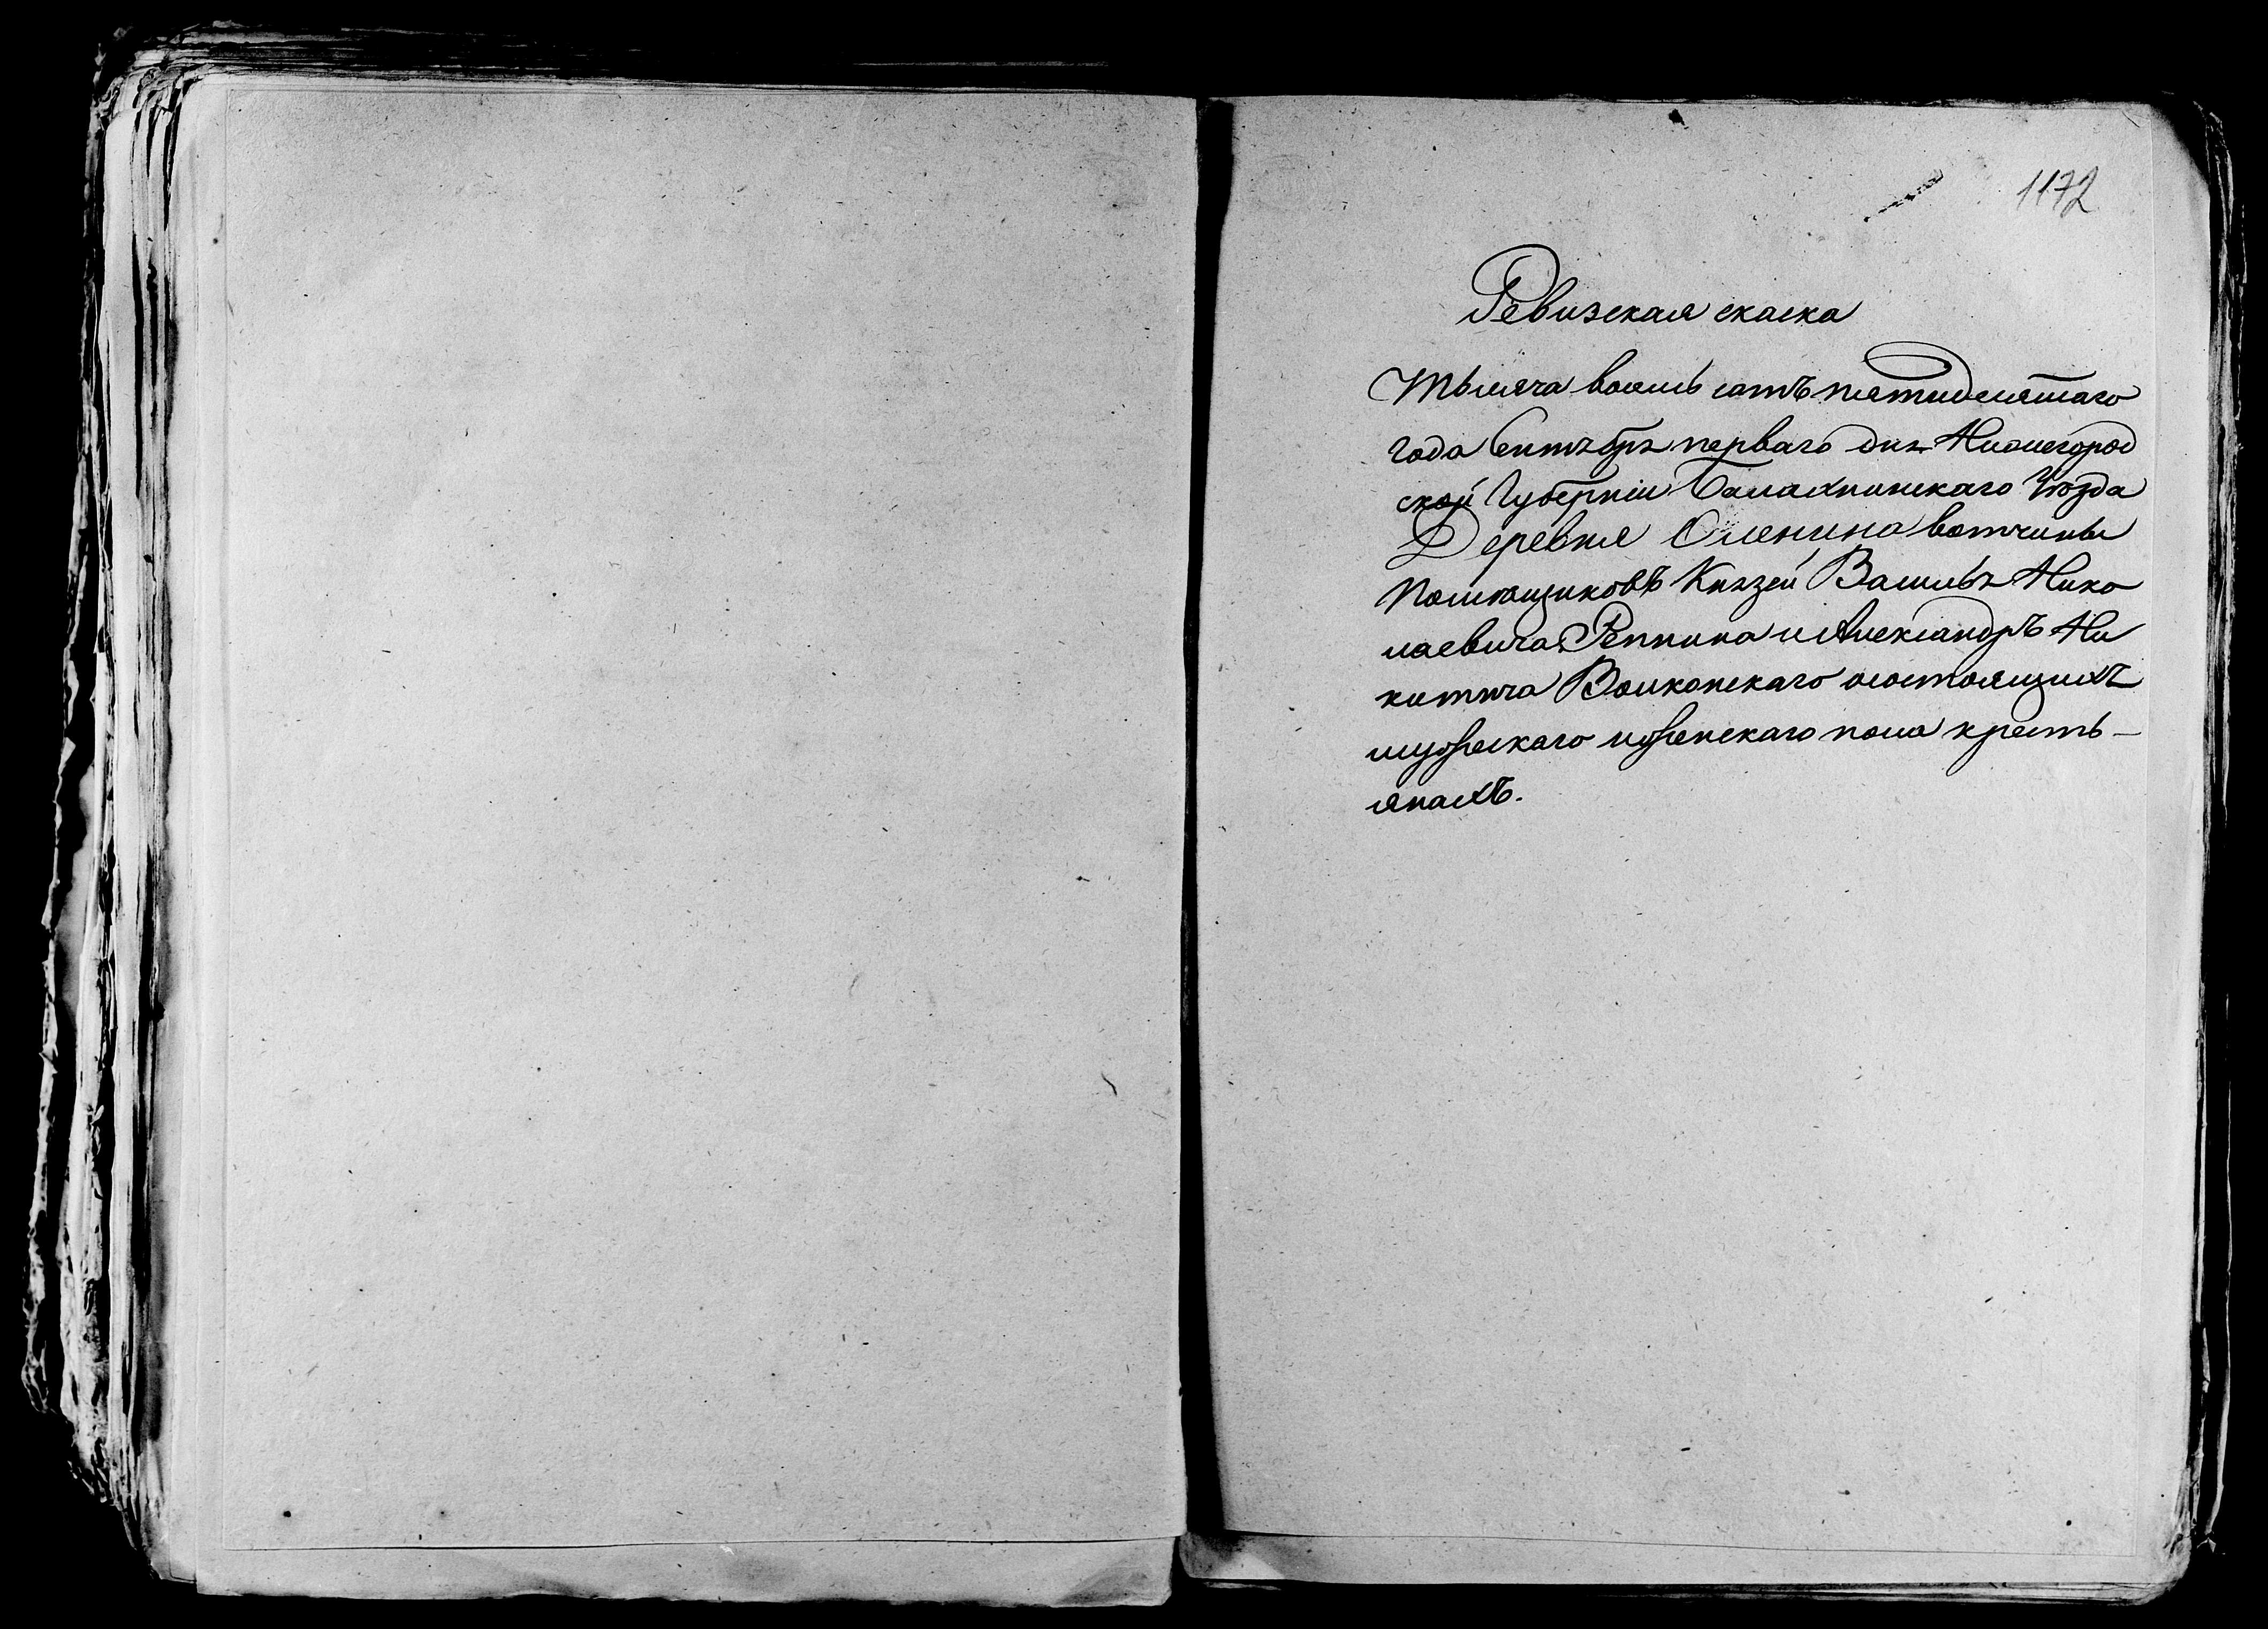 1172
Ревизская скаска
Тысяча восемь сотъ пятидесятаго
года Сентября перваго дня Нижегород
ской Губерніи Балахнинскаго Уѣзда
Деревня Оленина вотчины
Помѣщиковъ Князей Василья Нико
лаевича Репнина и Александръ Ни
китича Волконскаго осостоящихъ
мужескаго иженскаго пола кресть-
янахъ.